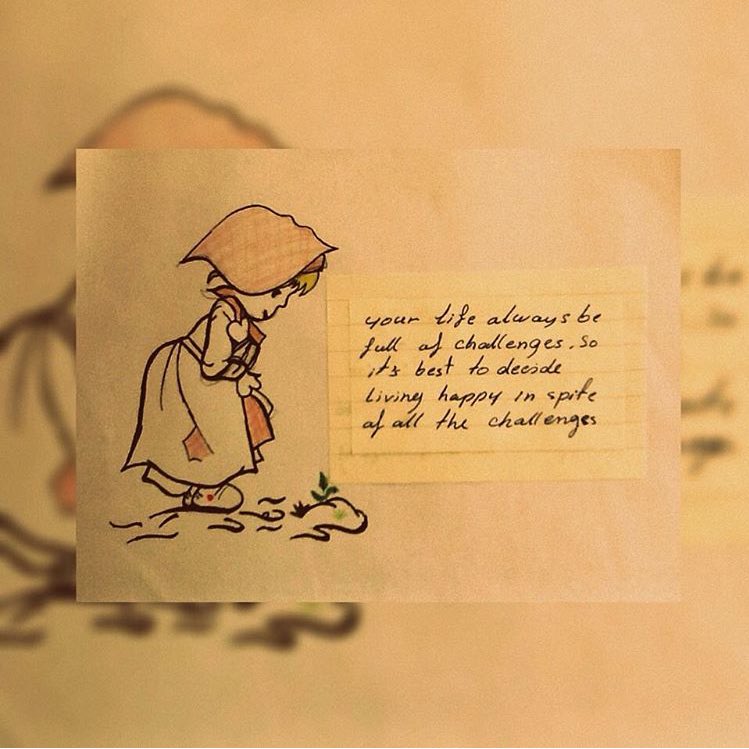 your life always be
full of challenges. So
it's best to decide
living happy in spite
of all the challenges